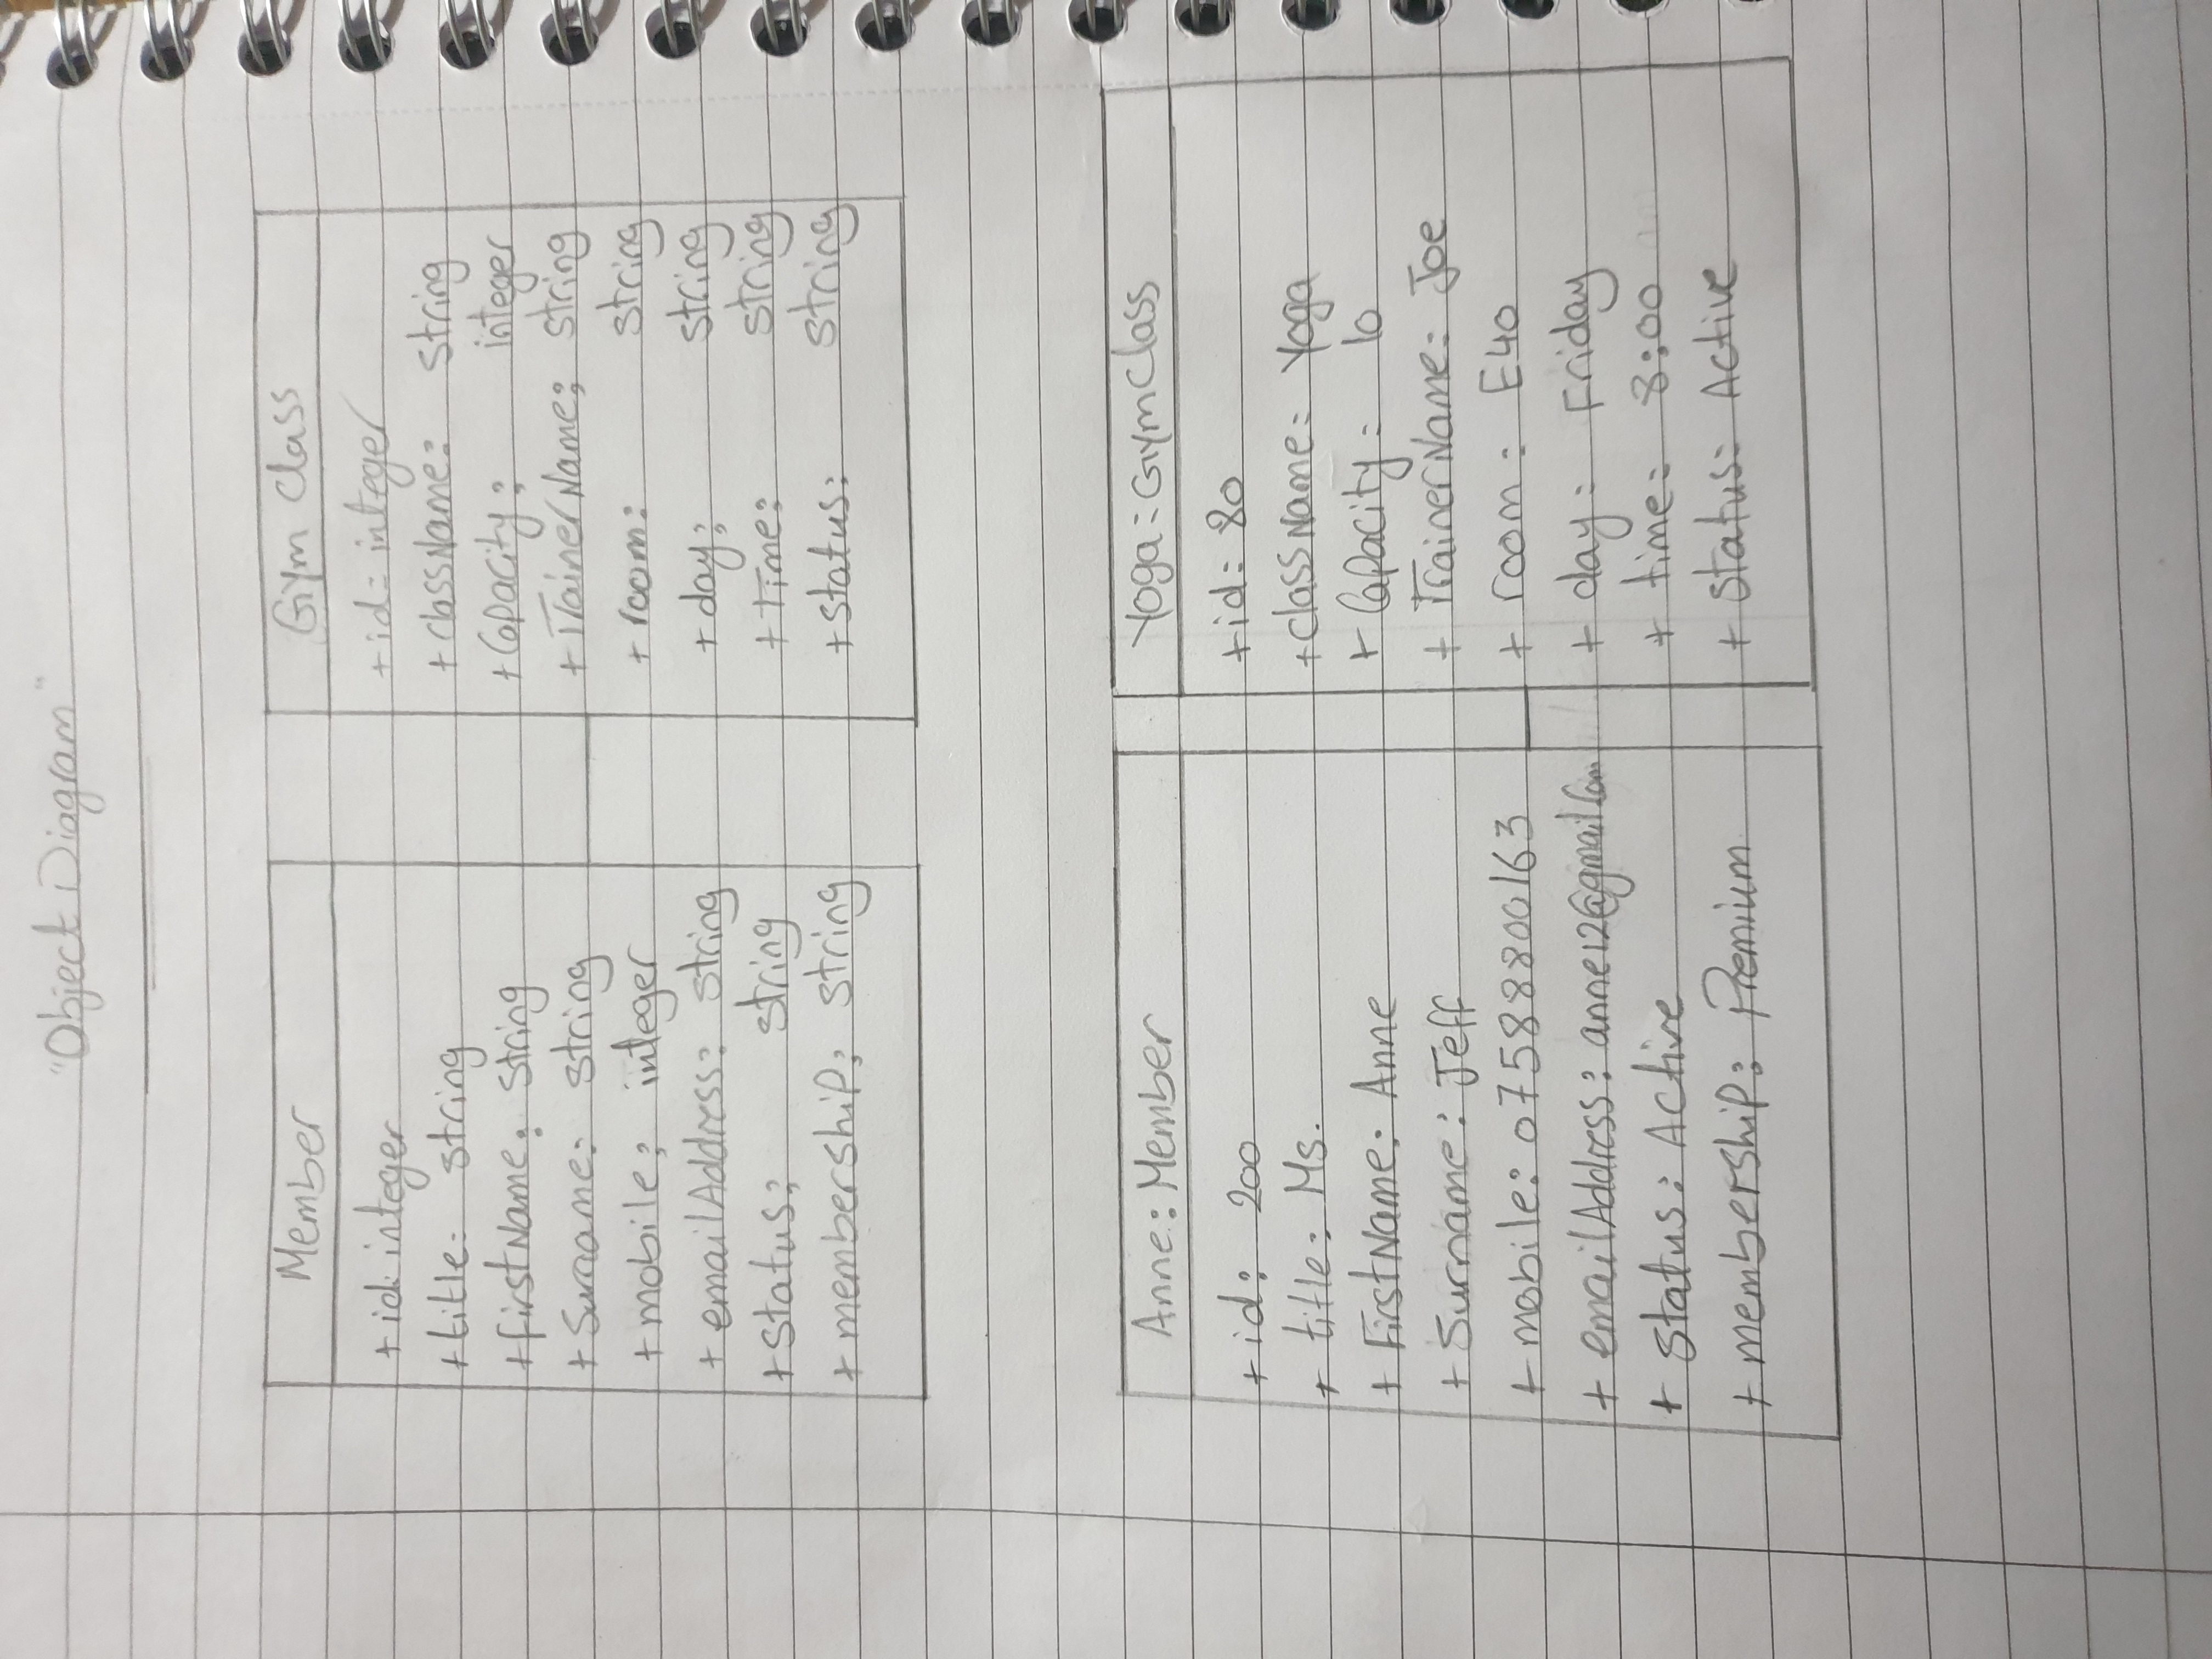 "Object Diagram"
Member
+ id: integer
+ title: string
+ firstName: string
+ Surname: string
+ mobile: integer
+ emailAddress: string
+ Status: string
+ membership: string
Gym Class
+ id: integer
+ className: string
+ Capacity: integer
+ TrainerName: string
+ room: string
+ day: string
+ Time: string
+ status: string
Anne: Member
+ id: 200
+ title: Ms.
+ FirstName: Anne
+ Surname: Jeff
+ mobile: 07588800163
+ emailAddress: anne12@gmail.com
+ Status: Active
+ membership: Premium
Yoga: GymClass
+ id: 80
+ className: Yoga
+ Capacity: 10
+ TrainerName: Joe
+ room: E40
+ day: Friday
+ time: 8:00
+ Status: Active